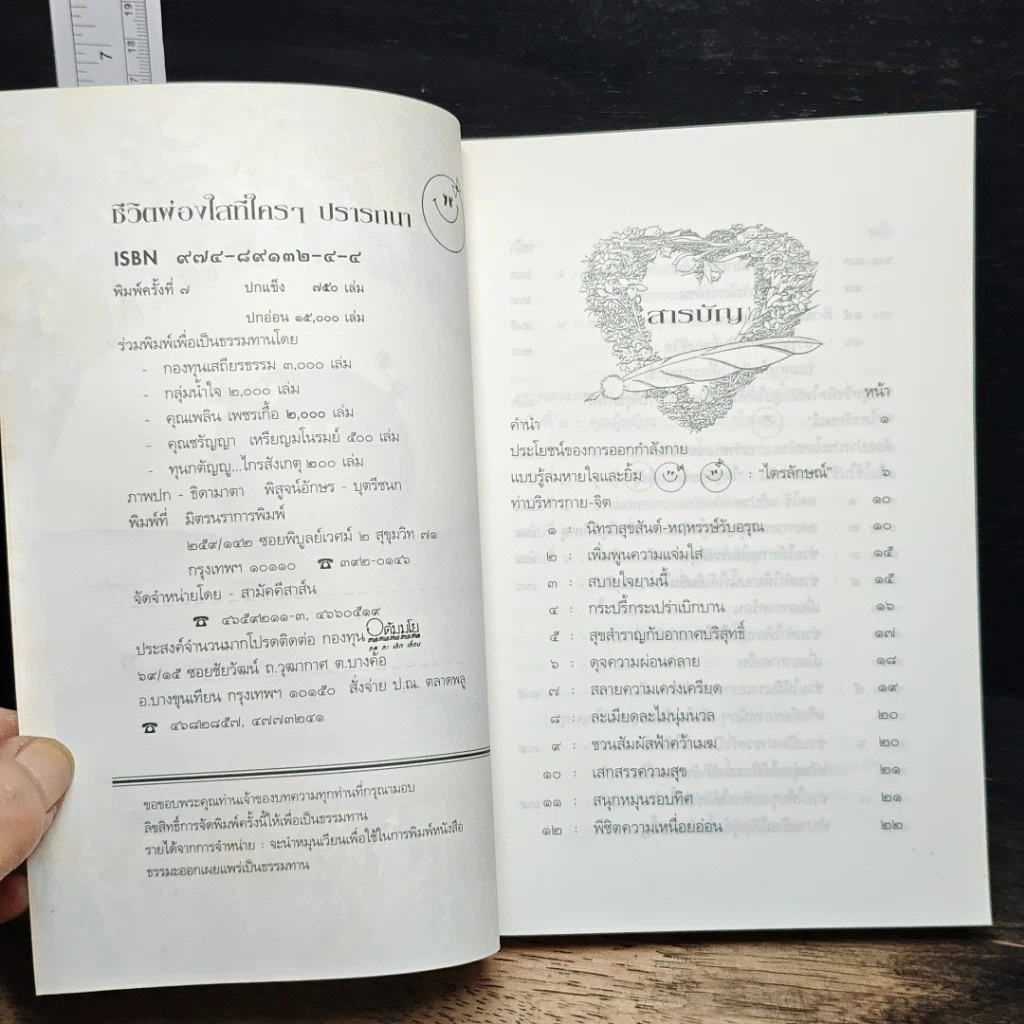 ชีวิตผ่องใสที่ใครๆ ปรารถนา
ISBN ๙๗๔-๘๙๑๓๒-๔-๔
พิมพ์ครั้งที่ ๗ ปกแข็ง ๗๕๐ เล่ม
ปกอ่อน ๑๕,๐๐๐ เล่ม
ร่วมพิมพ์เพื่อเป็นธรรมทานโดย
- กองทุนเสถียรธรรม ๓,๐๐๐ เล่ม
- กลุ่มน้ำใจ ๒,๐๐๐ เล่ม
- คุณเพลิน เพชรเกื้อ ๒,๐๐๐ เล่ม
- คุณชรัญญา เหรียญมโนรมย์ ๕๐๐ เล่ม
- ทุนกตัญญู...ไกรสังเกตุ ๒๐๐ เล่ม
ภาพปก - ธิดามาตา พิสูจน์อักษร - บุตรีชนก
พิมพ์ที่ มิตรนราการพิมพ์
๒๕๙/๑๔๒ ซอยพิบูลย์เวศม์ ๒ สุขุมวิท ๗๑
กรุงเทพฯ ๑๐๑๑๐ ☎ ๓๙๒-๐๑๔๖
จัดจำหน่ายโดย - สามัคคีสาส์น
☎ ๔๖๕๙๒๑๑-๓, ๔๖๖๐๕๑๙
ประสงค์จำนวนมากโปรดติดต่อ กองทุน
๖๙/๑๕ ซอยชัยวัฒน์ ถ.วุฒากาศ ต.บางค้อ
อ.บางขุนเทียน กรุงเทพฯ ๑๐๑๕๐ สั่งจ่าย ป.ณ. ตลาดพลู
☎ ๔๖๘๒๘๕๗, ๔๗๗๓๒๔๑
ขอขอบพระคุณท่านเจ้าของบทความทุกท่านที่กรุณามอบ
ลิขสิทธิ์การจัดพิมพ์ครั้งนี้ให้เพื่อเป็นธรรมทาน
รายได้จากการจำหน่าย : จะนำหมุนเวียนเพื่อใช้ในการพิมพ์หนังสือ
ธรรมะออกเผยแพร่เป็นธรรมทาน
สารบัญ
หน้า
คำนำ ๑
ประโยชน์ของการออกกำลังกาย
แบบรู้ลมหายใจและยิ้ม : "ไตรลักษณ์" ๖
ท่าบริหารกาย-จิต ๑๐
๑ : นิทราสุขสันต์-หฤหรรษ์รับอรุณ ๑๐
๒ : เพิ่มพูนความแจ่มใส ๑๕
๓ : สบายใจยามนี้ ๑๕
๔ : กระปรี้กระเปร่าเบิกบาน ๑๖
๕ : สุขสำราญกับอากาศบริสุทธิ์ ๑๗
๖ : ดุจความผ่อนคลาย ๑๘
๗ : สลายความเคร่งเครียด ๑๙
๘ : ละเมียดละไมนุ่มนวล ๒๐
๙ : ชวนสัมผัสฟ้าคว้าเมฆ ๒๐
๑๐ : เสกสรรความสุข ๒๑
๑๑ : สนุกหมุนรอบทิศ ๒๑
๑๒ : พิชิตความเหนื่อยอ่อน ๒๒